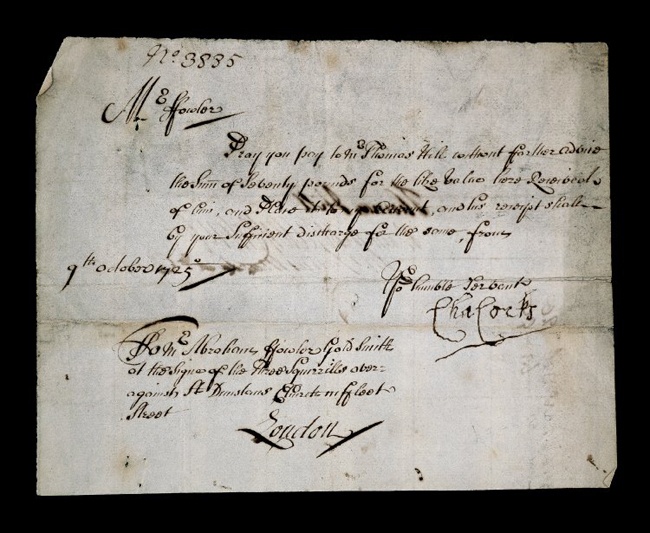 No 3835
Mr ffowler
Pray you pay to Mr Thomas Hill without farther advice
the Sum of Seventy pounds for the like Value here Received
of him, and Place it to my Accompt, and his receipt shall
by your Sufficient discharge for the same, from
9th october 1725
Yor humble Servant
Cha Cocks
To Mr Abraham ffowler Gold Smith
at the Signe of the Three Squirrills over
against St Dunstans Church in ffleet
Street
London